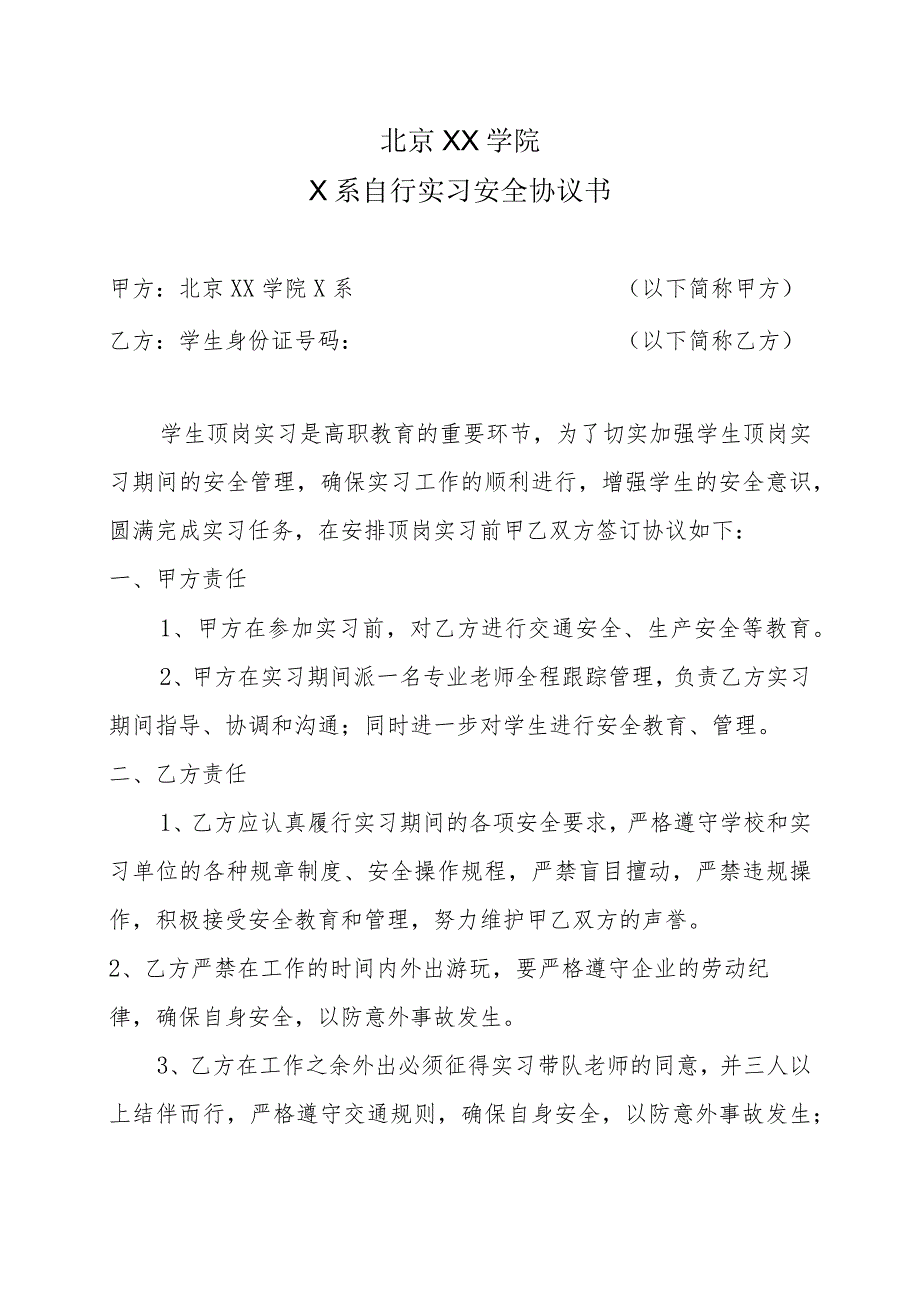 北京 XX 学院
X 系自行实习安全协议书
甲方：北京 XX 学院 X 系 （以下简称甲方）
乙方：学生身份证号码： （以下简称乙方）
学生顶岗实习是高职教育的重要环节，为了切实加强学生顶岗实
习期间的安全管理，确保实习工作的顺利进行，增强学生的安全意识，
圆满完成实习任务，在安排顶岗实习前甲乙双方签订协议如下：
一、甲方责任
1、甲方在参加实习前，对乙方进行交通安全、生产安全等教育。
2、甲方在实习期间派一名专业老师全程跟踪管理，负责乙方实习
期间指导、协调和沟通；同时进一步对学生进行安全教育、管理。
二、乙方责任
1、乙方应认真履行实习期间的各项安全要求，严格遵守学校和实
习单位的各种规章制度、安全操作规程，严禁盲目擅动，严禁违规操
作，积极接受安全教育和管理，努力维护甲乙双方的声誉。
2、乙方严禁在工作的时间内外出游玩，要严格遵守企业的劳动纪
律，确保自身安全，以防意外事故发生。
3、乙方在工作之余外出必须征得实习带队老师的同意，并三人以
上结伴而行，严格遵守交通规则，确保自身安全，以防意外事故发生；